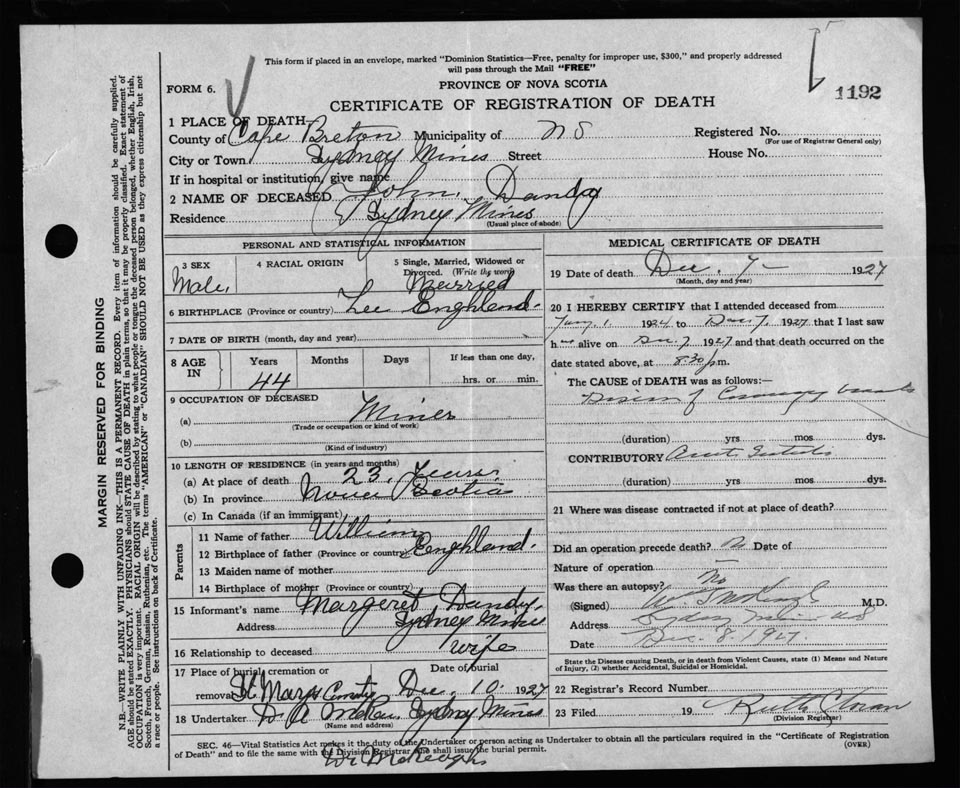 This form if placed in an envelope, marked "Dominion Statistics—Free, penalty for improper use, $300," and properly addressed
will pass through the Mail "FREE"
FORM 6.
PROVINCE OF NOVA SCOTIA
1192
CERTIFICATE OF REGISTRATION OF DEATH
1 PLACE OF DEATH
County of Cape Breton Municipality of N S Registered No.
(For use of Registrar General only)
City or Town Sydney Mines Street House No.
If in hospital or institution, give name
2 NAME OF DECEASED John Dandy
Residence Sydney Mines
(Usual place of abode)
PERSONAL AND STATISTICAL INFORMATION
3 SEX 4 RACIAL ORIGIN 5 Single, Married, Widowed or
Divorced. (Write the word)
Male, Married
6 BIRTHPLACE (Province or country) Lee Enghland.
7 DATE OF BIRTH (month, day and year)
8 AGE IN Years Months Days If less than one day,
44 hrs. or min.
9 OCCUPATION OF DECEASED
(a) Miner
(Trade or occupation or kind of work)
(b)
(Kind of industry)
10 LENGTH OF RESIDENCE (in years and months)
(a) At place of death 23 Years
(b) In province Nova Scotia
(c) In Canada (if an immigrant)
Parents
11 Name of father William
12 Birthplace of father (Province or country) Enghland.
13 Maiden name of mother
14 Birthplace of mother (Province or country)
15 Informant's name Margeret Dandy,
Address Sydney Mines
16 Relationship to deceased Wife
17 Place of burial, cremation or Date of burial
removal St Marys Dec. 10. 1927
18 Undertaker D A Sydney Mines
(Name and address)
MEDICAL CERTIFICATE OF DEATH
19 Date of death Dec. 7 — 1927
(Month, day and year)
20 I HEREBY CERTIFY that I attended deceased from
1924 to Dec 7, 1927 that I last saw
h alive on Dec. 7 1927 and that death occurred on the
date stated above, at 8.30 p.m.
The CAUSE of DEATH was as follows:—
Disease of Coronary
(duration) yrs mos dys.
CONTRIBUTORY
(duration) yrs mos dys.
21 Where was disease contracted if not at place of death?
Did an operation precede death? Date of
Nature of operation
Was there an autopsy? No
(Signed) M.D.
Address Sydney Mines N S
Date Dec. 8. 1927.
State the Disease causing Death, or in death from Violent Causes, state (1) Means and Nature
of Injury, (2) whether Accidental, Suicidal or Homicidal.
22 Registrar's Record Number
23 Filed 19 Ruth
(Division Registrar)
SEC. 46—Vital Statistics Act makes it the duty of the Undertaker or person acting as Undertaker to obtain all the particulars required in the "Certificate of Registration
of Death" and to file the same with the Division Registrar who shall issue the burial permit. (OVER)
Dr McKeough
MARGIN RESERVED FOR BINDING
N.B.—WRITE PLAINLY WITH UNFADING INK—THIS IS A PERMANENT RECORD. Every item of information should be carefully supplied.
AGE should be stated EXACTLY. PHYSICIANS should STATE CAUSE OF DEATH in plain terms, so that it may be properly classified. Exact statement of
OCCUPATION is very important. RACIAL ORIGIN will be described by stating to what people or tongue the deceased person belonged, whether English, Irish,
Scotch, French, German, Russian, Ruthenian, etc. The terms "AMERICAN" or "CANADIAN" SHOULD NOT BE USED as they express citizenship but not
a race or people. See instructions on back of Certificate.